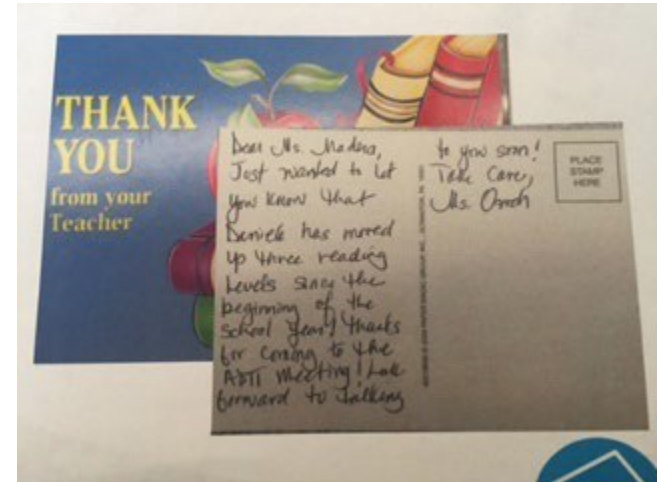 THANK
YOU
from your
Teacher
Dear Ms. Madera,
Just wanted to let
you know that
Daniela has moved
up three reading
levels since the
beginning of the
school year! Thanks
for coming to the
APTT meeting! Look
forward to talking
to you soon!
Take Care,
Ms.
PLACE
STAMP
HERE